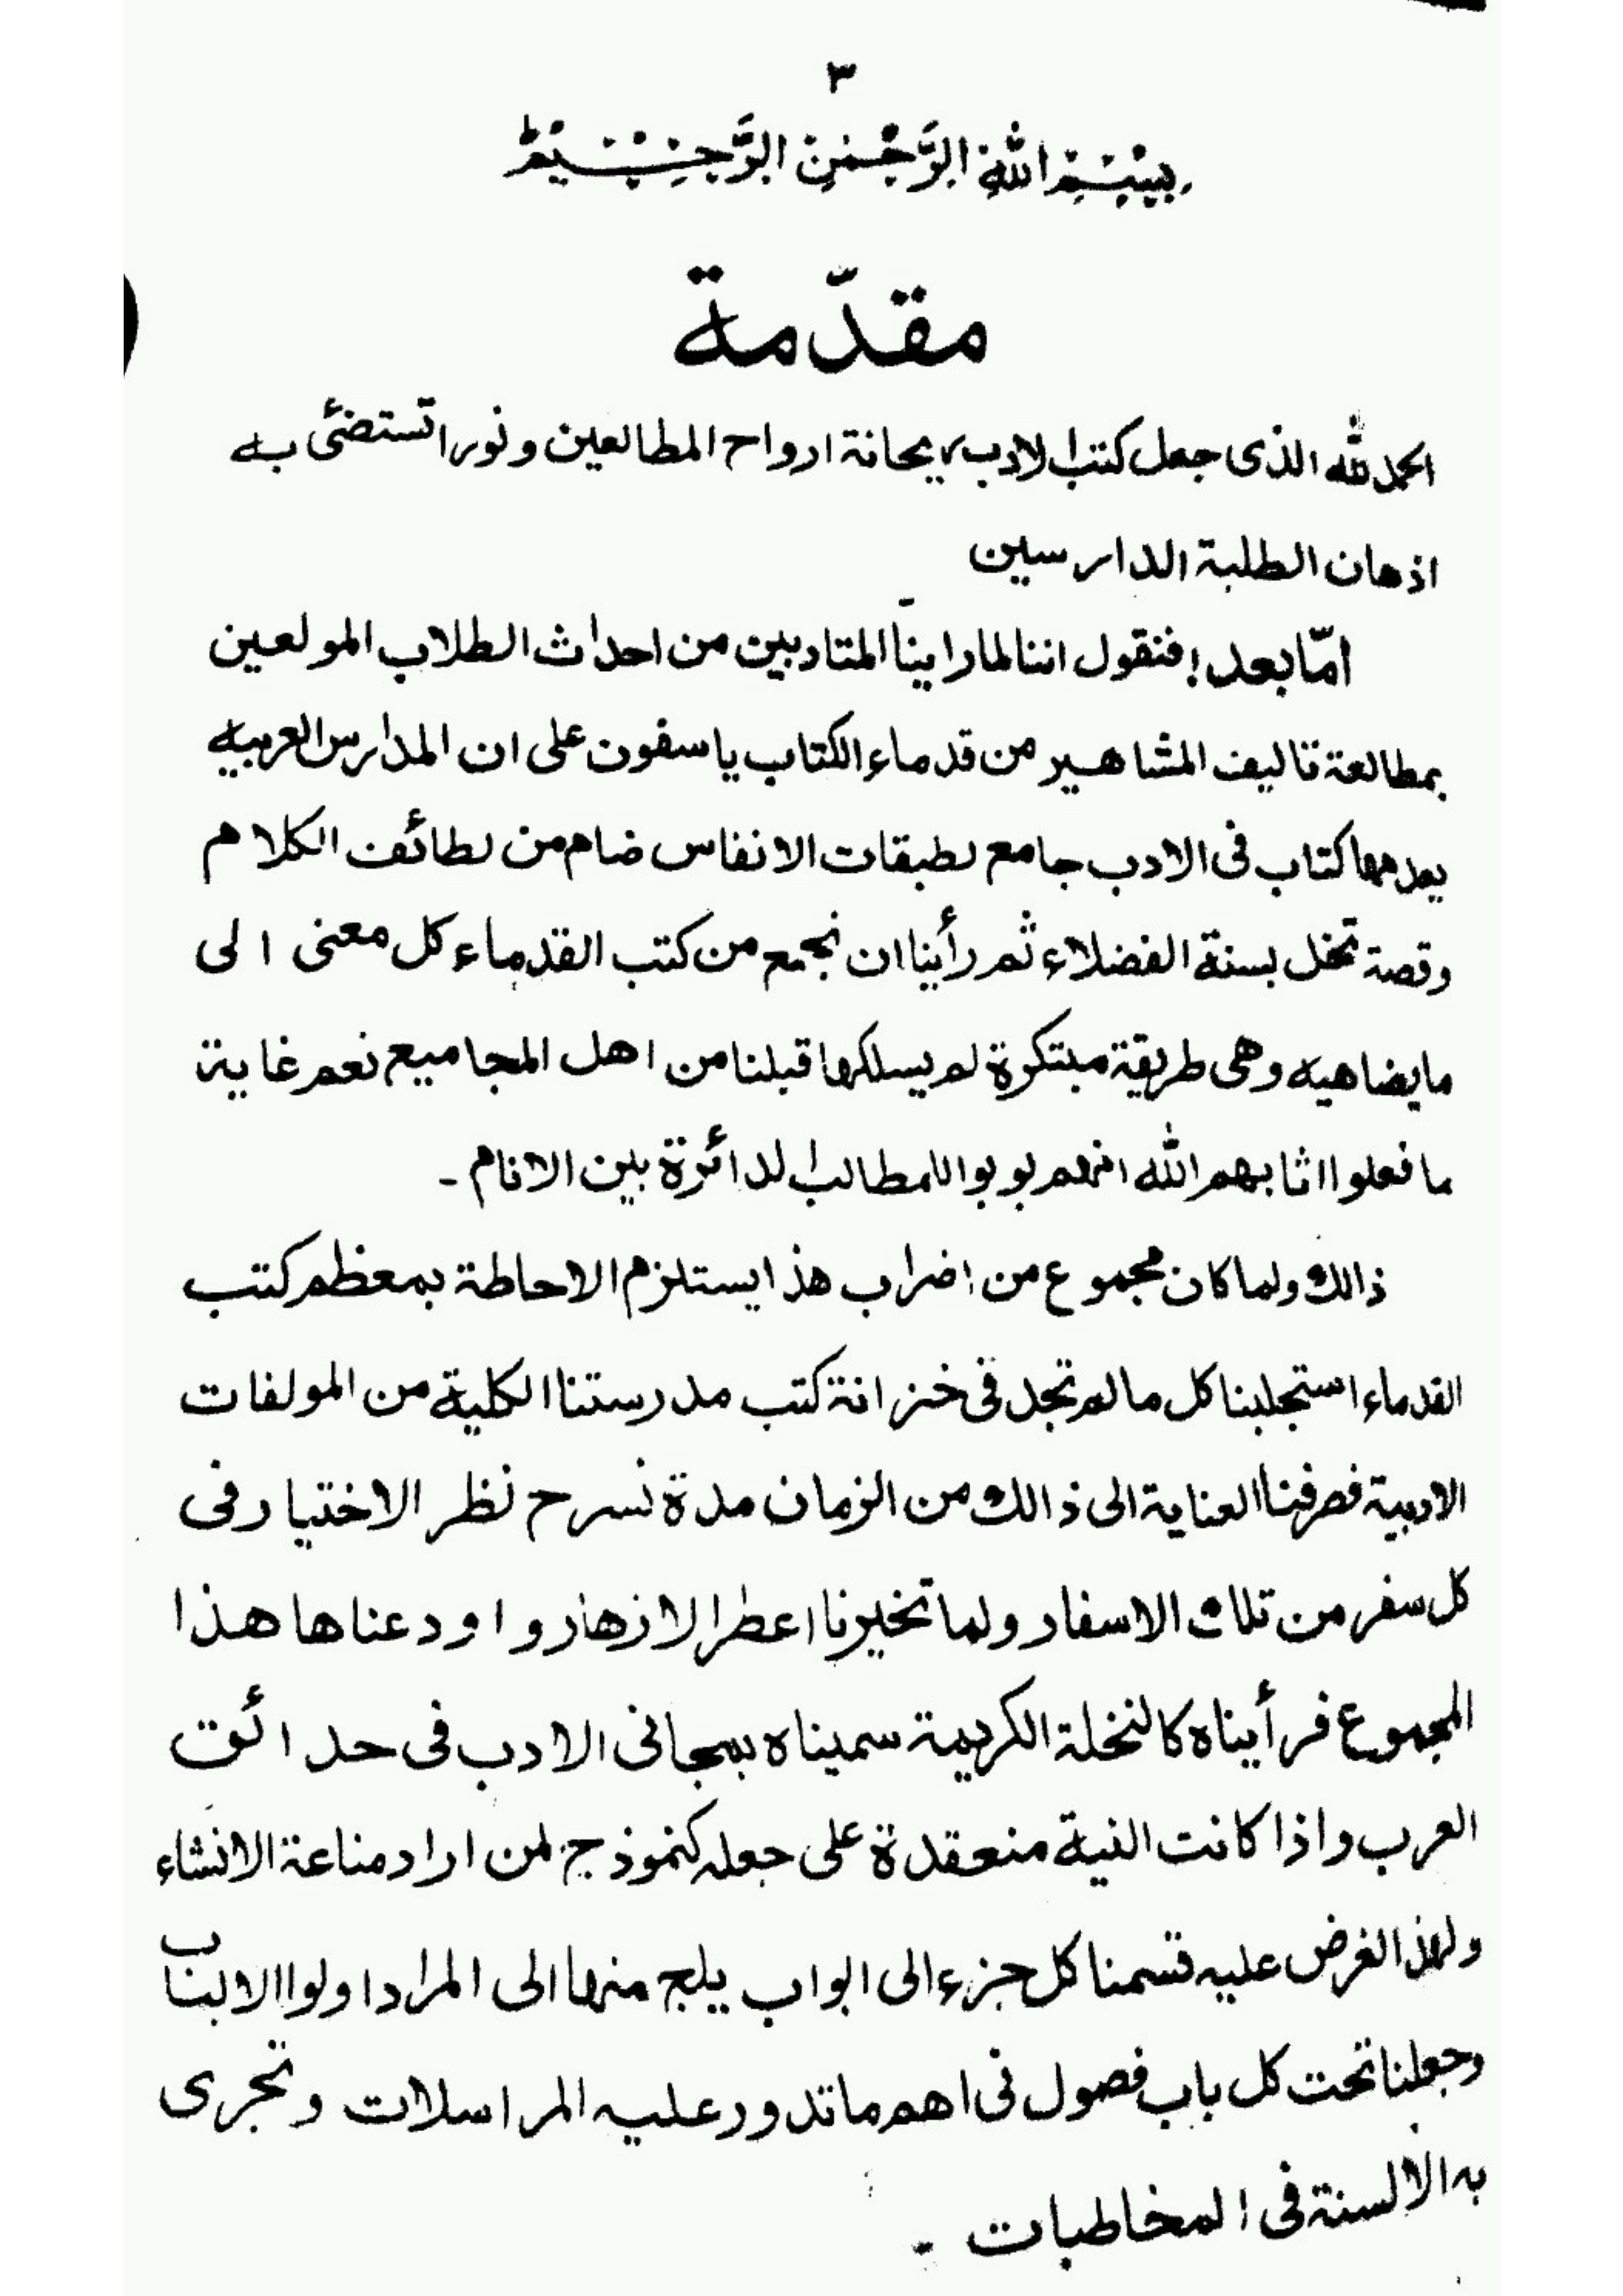 ٣
بِسْمِ اللهِ الرَّحْمٰنِ الرَّحِيْمِ
مقدّمة
الحمد لله الذى جعل كتب الادب ريحانة ارواح المطالعين ونورا تستضئ به
اذهان الطلبة الدارسين
امّا بعد! فنقول اننا لما راينا المتادبين من احداث الطلاب المولعين
بمطالعة تاليف المشاهير من قدماء الكتاب ياسفون على ان المدارس العربيه
يعدمها كتاب فى الادب جامع لطبقات الانفاس ضام من لطائف الكلام
وقصة تخل بسنة الفضلاء ثم رأينا ان نجمع من كتب القدماء كل معنى الى
مايضاهيه وهى طريقة مبتكرة لم يسلكها قبلنا من اهل المجاميع نعم غاية
ما فعلوا اثابهم الله انهم بوبوا للمطالب الدائرة بين الانام -
ذالك ولما كان مجموع من اضراب هذا يستلزم الاحاطة بمعظم كتب
القدماء استجلبنا كل مالم تجد فى خزانة كتب مدرستنا الكلية من المولفات
الادبية فصرفنا العناية الى ذالك من الزمان مدة نسرح نظر الاختيار فى
كل سفر من تلك الاسفار ولما تخيرنا اعطر الازهار واودعناها هذا
المجموع فرأيناه كالنخلة الكريمة سميناه بمجانى الادب فى حدائق
العرب واذا كانت النية منعقدة على جعله كنموذج لمن اراد مناعة الانشاء
ولهذ الغرض عليه قسمنا كل جزء الى ابواب يلج منها الى المراد اولوا الالباب
وجعلنا تحت كل باب فصول فى اهم ماتدور عليه المراسلات وتجرى
به الالسنة فى المخاطبات -